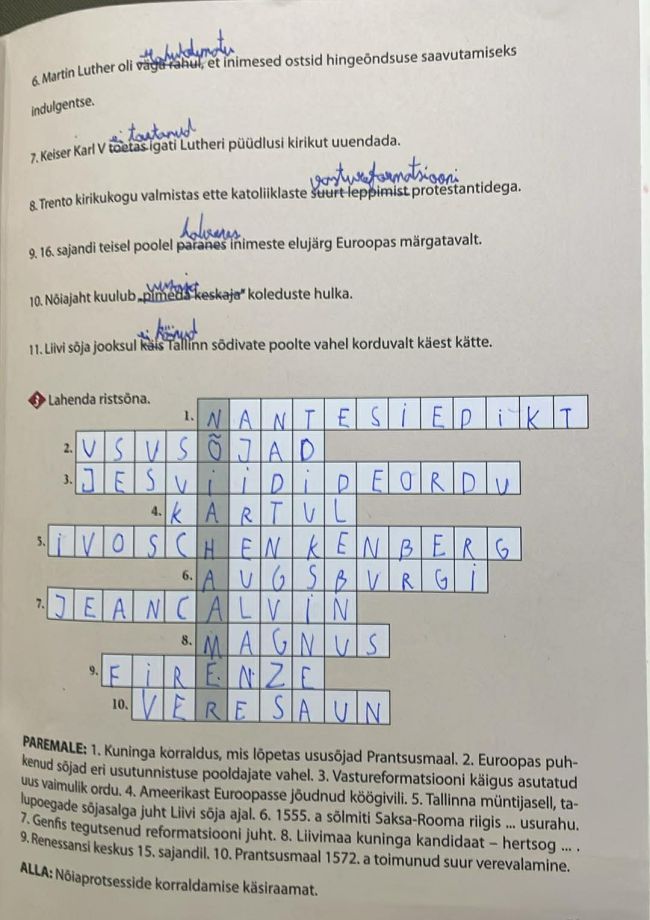 rahulolematu
6. Martin Luther oli väga rahul, et inimesed ostsid hingeõndsuse saavutamiseks
indulgentse.
ei toetanud
7. Keiser Karl V toetas igati Lutheri püüdlusi kirikut uuendada.
vastureformatsiooni
8. Trento kirikukogu valmistas ette katoliiklaste suurt leppimist protestantidega.
halvenes
9. 16. sajandi teisel poolel paranes inimeste elujärg Euroopas märgatavalt.
10. Nõiajaht kuulub „pimeda keskaja" koleduste hulka.
ei käinud
11. Liivi sõja jooksul käis Tallinn sõdivate poolte vahel korduvalt käest kätte.
3 Lahenda ristsõna.
1. NANTESIEDIKT
2. USUSÕJAD
3. JESUIIDIDEORDU
4. KARTUL
5. IVOSCHENKENBERG
6. AUGSBURGI
7. JEANCALVIN
8. MAGNUS
9. FIRENZE
10. VERESAUN
PAREMALE: 1. Kuninga korraldus, mis lõpetas ususõjad Prantsusmaal. 2. Euroopas puh-
kenud sõjad eri usutunnistuse pooldajate vahel. 3. Vastureformatsiooni käigus asutatud
uus vaimulik ordu. 4. Ameerikast Euroopasse jõudnud köögivili. 5. Tallinna müntijasell, ta-
lupoegade sõjasalga juht Liivi sõja ajal. 6. 1555. a sõlmiti Saksa-Rooma riigis ... usurahu.
7. Genfis tegutsenud reformatsiooni juht. 8. Liivimaa kuninga kandidaat – hertsog ... .
9. Renessansi keskus 15. sajandil. 10. Prantsusmaal 1572. a toimunud suur verevalamine.
ALLA: Nõiaprotsesside korraldamise käsiraamat.